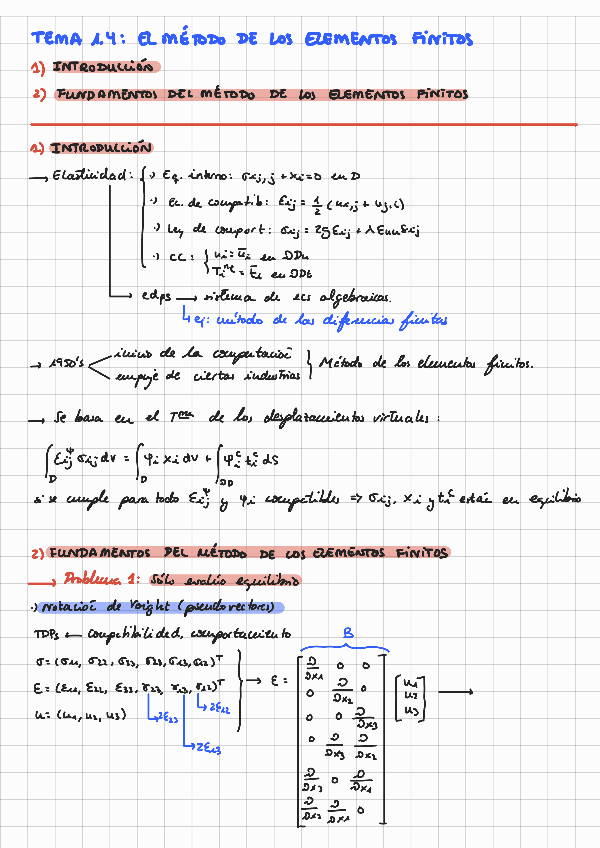 TEMA 1.4: EL MÉTODO DE LOS ELEMENTOS FINITOS
1) INTRODUCCIÓN
2) FUNDAMENTOS DEL MÉTODO DE LOS ELEMENTOS FINITOS
1) INTRODUCCIÓN
→ Elasticidad: { ·) Eq. interno: σij,j + xi = 0 en D
·) Ec. de compatib: εij = 1/2 (ui,j + uj,i)
·) Ley de comport: σij = 2G εij + λ εkk δij
·) CC: { ui = ūi en ∂Du
Ti^nc = t̄i en ∂Dt
→ edps → sistema de ecs algebraicas.
↳ ej: método de las diferencias finitas
→ 1950's < inicio de la computació
empuje de ciertas industrias } Método de los elementos finitos.
→ Se basa en el Tma de los desplazamientos virtuales:
∫_D εij^φ σij dV = ∫_D φi xi dV + ∫_∂D φi^c ti^c dS
si se cumple para todo εij^φ y φi compatibles ⇒ σij, xi y ti^c están en equilibrio
2) FUNDAMENTOS DEL MÉTODO DE LOS ELEMENTOS FINITOS
→ Problema 1: sólo evalúo equilibrio
·) Notació de Voight (pseudovectores)
TDPs ← compatibilidad, comportamiento
σ = (σ11, σ22, σ33, σ23, σ13, σ12)^T
ε = (ε11, ε22, ε33, γ23, γ13, γ12)^T
u = (u1, u2, u3)
2ε23
2ε13
2ε12
B
→ ε = [ ∂/∂x1 0 0
0 ∂/∂x2 0
0 0 ∂/∂x3
0 ∂/∂x3 ∂/∂x2
∂/∂x3 0 ∂/∂x1
∂/∂x2 ∂/∂x1 0 ] [ u1
u2
u3 ] →